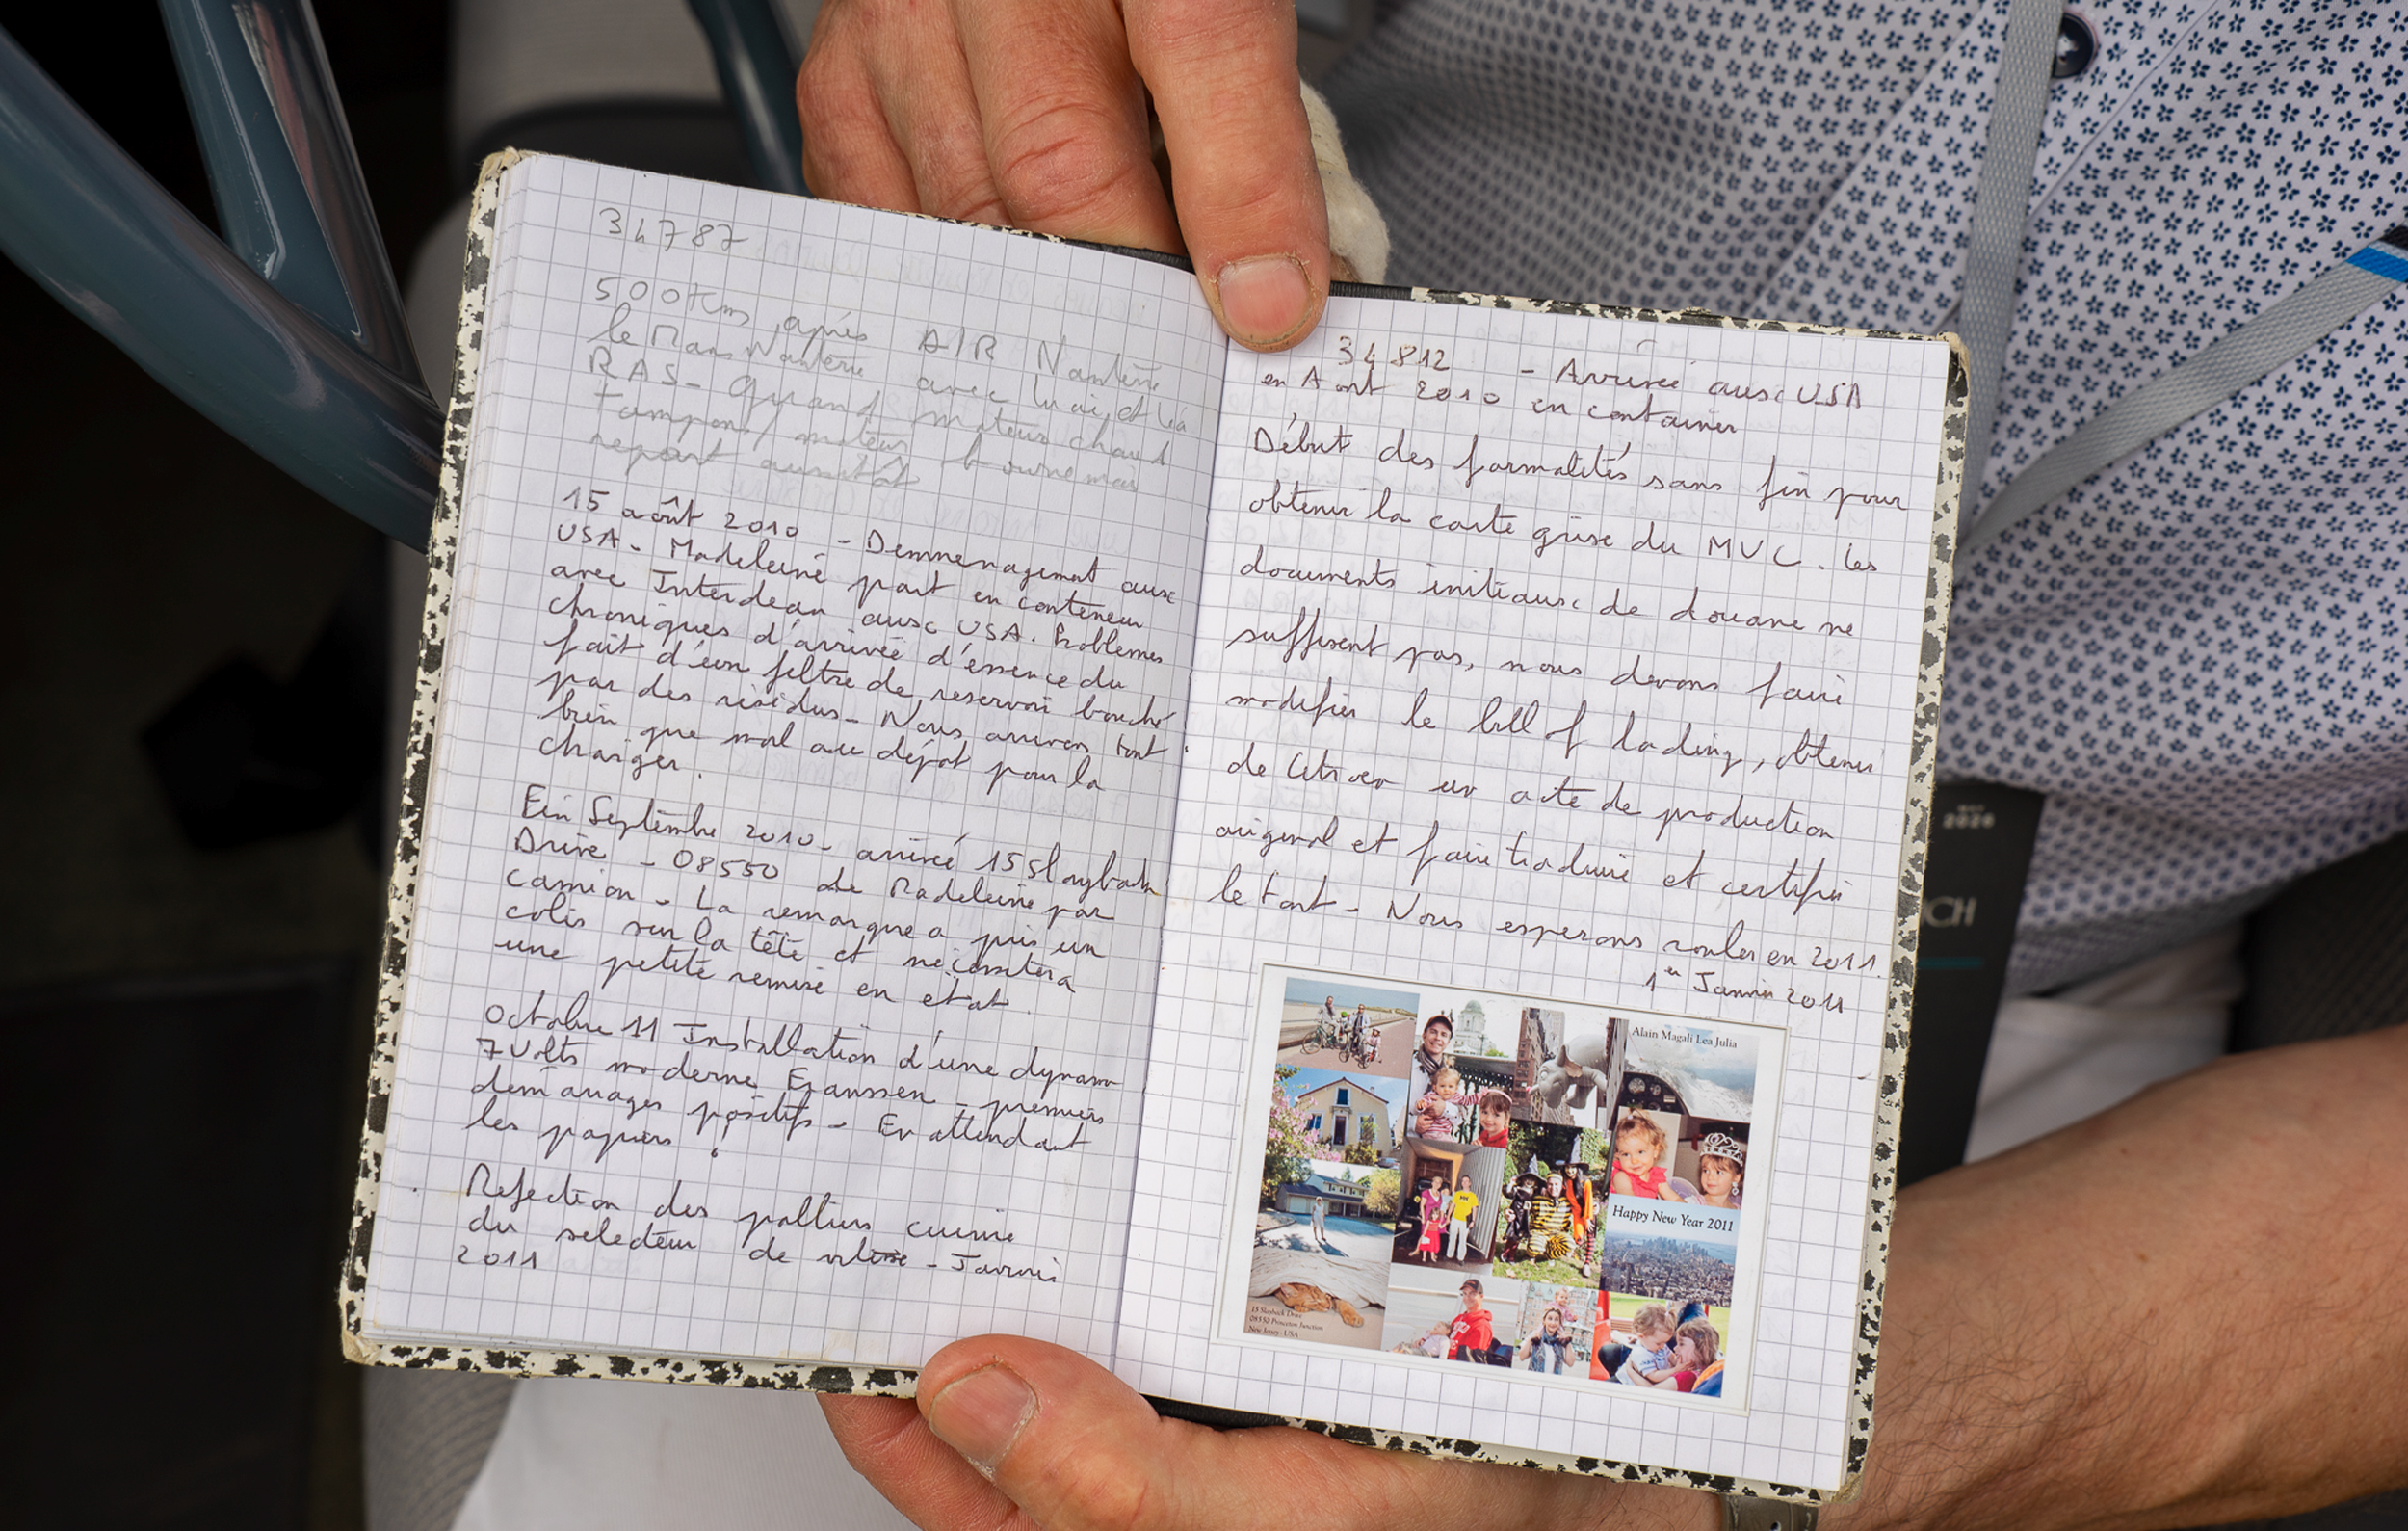 34787
500 Kms après AIR Nanterre
le Mans Nanterre avec lui et Léa
RAS - Quand moteur chaud
tampon / moteur broume mais
repart aussitôt
15 août 2010 - Demmenagement aux
USA - Madeleine part en conteneur
avec Interdean aux USA. Problemes
chroniques d'arrivée d'essence du
fait d'un filtre de reservoir bouché
par des résidus - Nous arrivons tout
bien que mal au dépot pour la
charger.
Fin Septembre 2010 - arrivée 15 Slayback
Drive - 08550 de Madeleine par
camion - La remorque a pris un
colis sur la tête et necessitera
une petite remise en etat.
Octobre 11 Installation d'une dynamo
7 Volts moderne - premiers
demarrages positifs - En attendant
les papiers !
Refection des palliers cuivre
du selecteur de vitesse - Janvier
2011
34 812 - Arrivée aux USA
en Aout 2010 en container
Début des formalités sans fin pour
obtenir la carte grise du MVC. Les
documents initiaux de douane ne
suffisent pas, nous devons faire
modifier le bill of lading, obtenir
de Citroen un acte de production
original et faire traduire et certifier
le tout - Nous esperons rouler en 2011.
1er Janvier 2011
Alain Magali Lea Julia
Happy New Year 2011
15 Slayback Drive
08550 Princeton Junction
New Jersey - USA
2026
CH